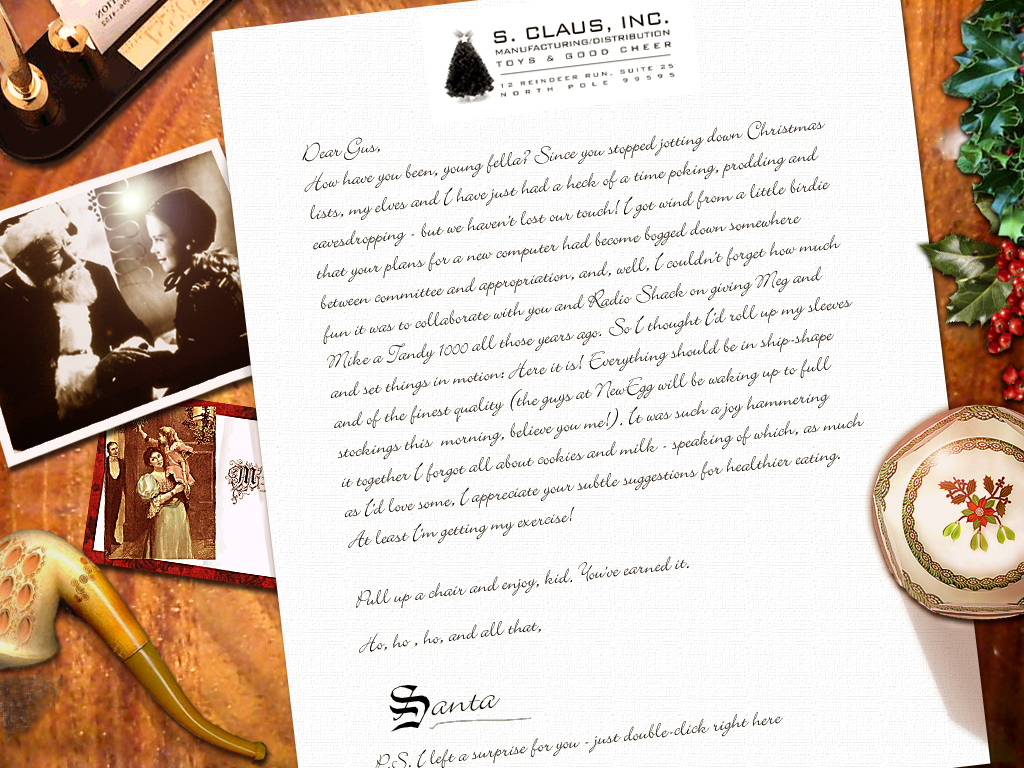 S. CLAUS, INC.
MANUFACTURING/DISTRIBUTION
TOYS & GOOD CHEER
12 REINDEER RUN, SUITE 25
NORTH POLE 99595
Dear Gus,
How have you been, young fella? Since you stopped jotting down Christmas
lists, my elves and I have just had a heck of a time poking, prodding and
eavesdropping - but we haven't lost our touch! I got wind from a little birdie
that your plans for a new computer had become bogged down somewhere
between committee and appropriation, and, well, I couldn't forget how much
fun it was to collaborate with you and Radio Shack on giving Meg and
Mike a Tandy 1000 all those years ago. So I thought I'd roll up my sleeves
and set things in motion: Here it is! Everything should be in ship-shape
and of the finest quality (the guys at NewEgg will be waking up to full
stockings this morning, believe you me!). It was such a joy hammering
it together I forgot all about cookies and milk - speaking of which, as much
as I'd love some, I appreciate your subtle suggestions for healthier eating.
At least I'm getting my exercise!
Pull up a chair and enjoy, kid. You've earned it.
Ho, ho , ho, and all that,
Santa
P.S. I left a surprise for you - just double-click right here